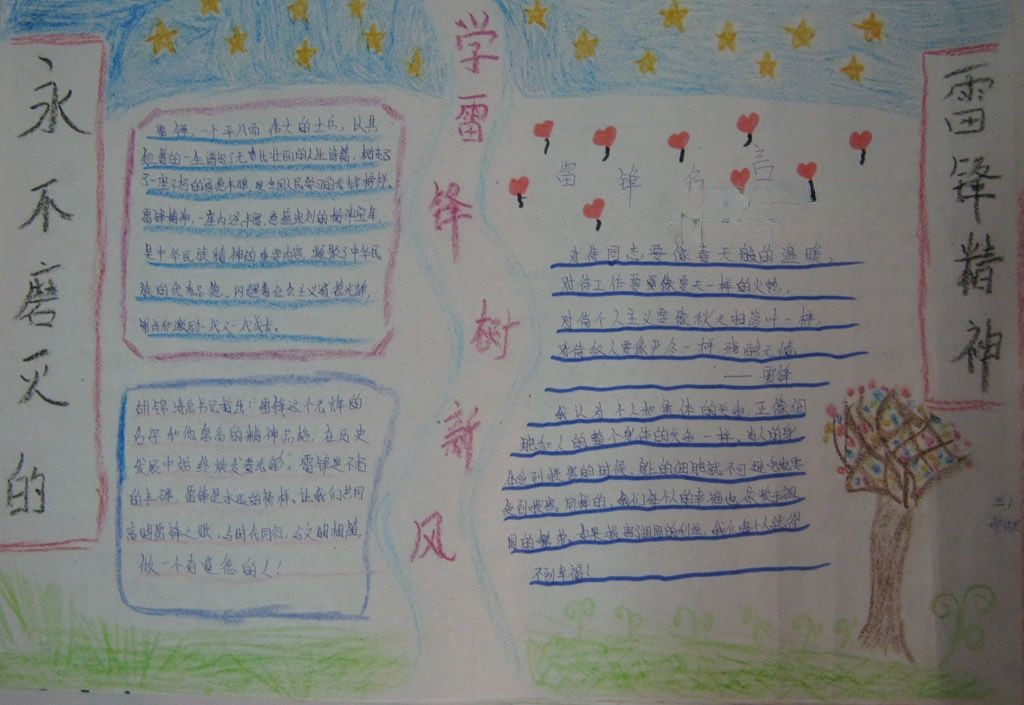 永不磨灭的
学雷锋树新风
雷锋精神
雷锋,一个平凡而伟大的士兵,以其
短暂的一生谱写了无比壮丽的人生诗篇,树起了
了一座不朽的道德丰碑,是全国人民学习的光辉榜样。
雷锋精神,一座内涵丰富、意蕴深刻的精神宝库,
是中华民族精神的重要内容,凝聚了中华民
族的传统品德,闪耀着社会主义道德光辉,
哺育和激励一代又一代成长。
胡锦涛总书记指出:雷锋这个光辉的
名字和他崇高的精神品格,在历史
发展中始终放发着光彩。雷锋是不朽
的丰碑,雷锋是永远的榜样。让我们共同
高唱雷锋之歌,与时代同行,与文明相随,
做一个有道德的人!
雷锋名言
对待同志要像春天般的温暖,
对待工作要像夏天一样的火热,
对待个人主义要像秋风扫落叶一样,
对待敌人要像严冬一样残酷无情
——雷锋
我认为个人和集体的关系,正像细
胞和人的整个身体的关系一样。当人的身
体受到损害的时候,身上的细胞就不可避免也要
受到损害。同样的,我们每个人的幸福也依赖于祖
国的繁荣,如果损害了祖国的利益,我们每个人就得
不到幸福!